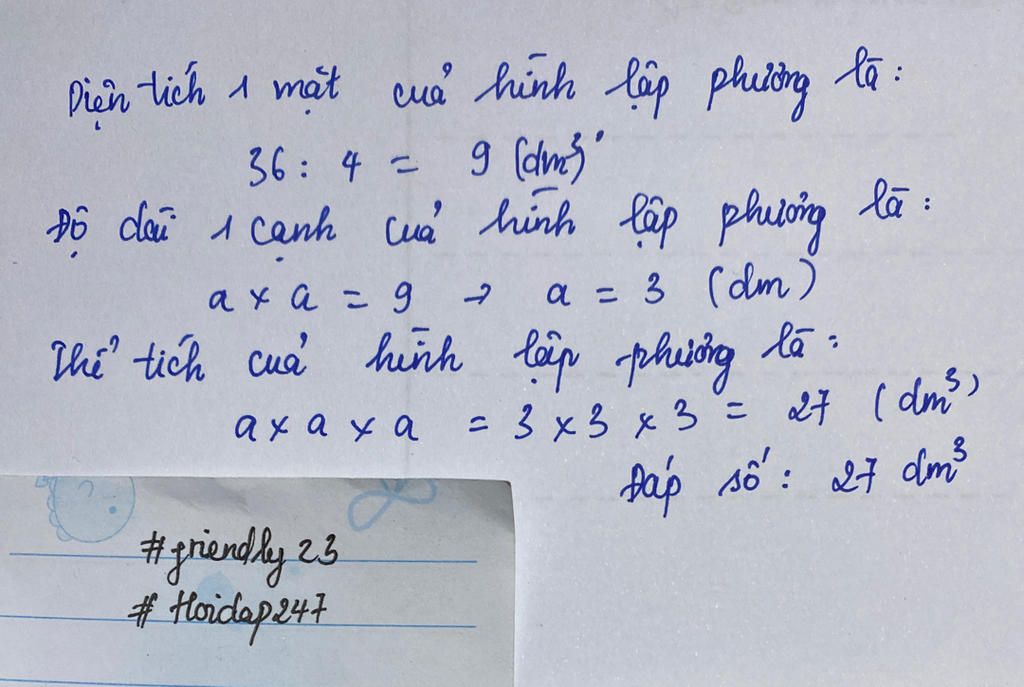 Diện tích 1 mặt của hình lập phương là:
36 : 4 = 9 (dm³)
Độ dài 1 cạnh của hình lập phương là:
a x a = 9 → a = 3 (dm)
Thể tích của hình lập phương là:
a x a x a = 3 x 3 x 3 = 27 (dm³)
Đáp số: 27 dm³
#friendly23
#Hoidap247